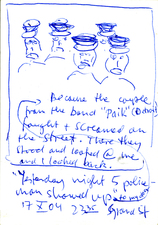 Because the couple
from the band "Paik" (Detroit)
fought + screamed on
the street. There they
stood and looked @ me
and I looked back.
"Yesterday night 5 police-
man showed up @ to me"
17 X 04 23
Grand St